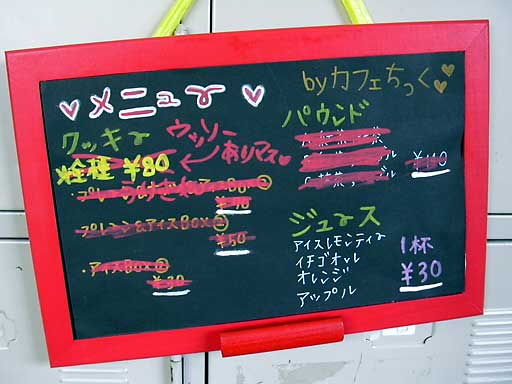 メニュー
byカフェちっく
クッキー
ウッソー
ありマス
全種 ¥80
・プレーン
アイスBOX②
¥70
プレーン&アイスBOX②
¥50
・アイスBOX②
¥30
パウンド
¥110
ジュース
アイスレモンティー
イチゴオレ
オレンジ
アップル
1杯
¥30